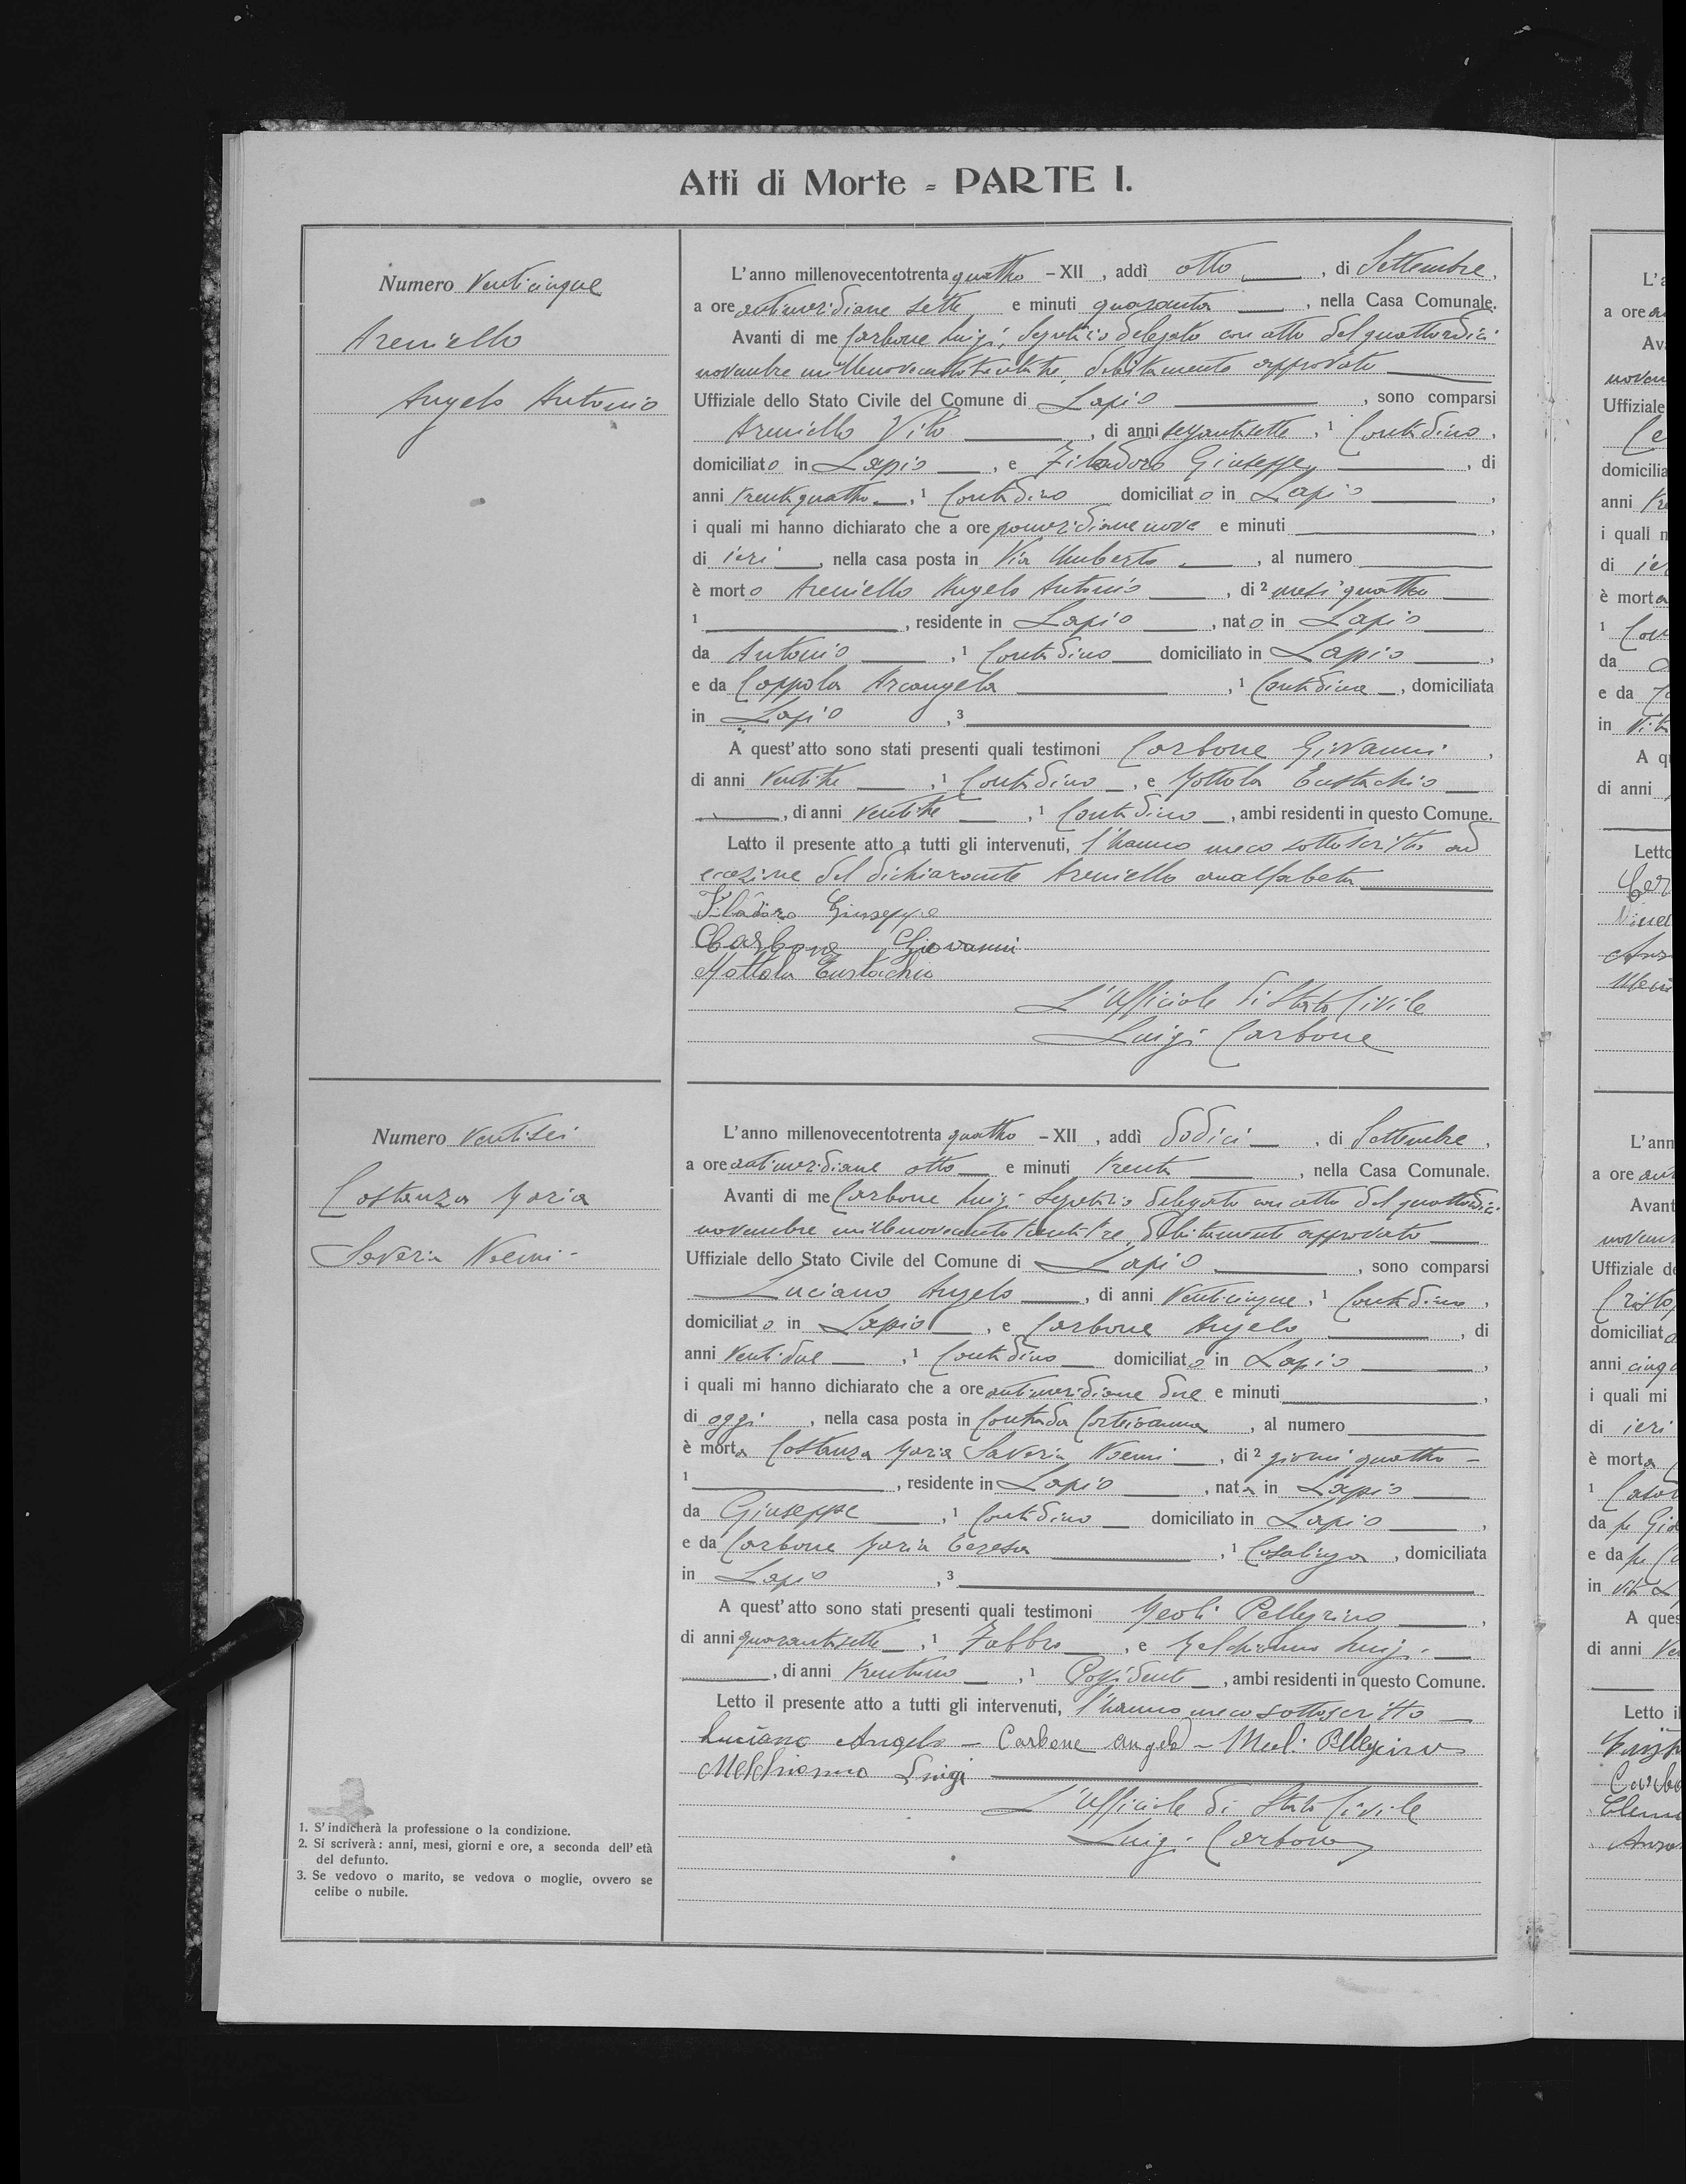 Atti di Morte = PARTE I.
Numero Venticinque
Areniello
Angelo Antonio
L'anno millenovecentotrenta quattro - XII, addì otto, di Settembre,
a ore antimeridiane sette e minuti quaranta, nella Casa Comunale.
Avanti di me Carbone Luigi, Segretario delegato con atto del quattordici
novembre millenovecentotrentatre, debitamente approvato
Uffiziale dello Stato Civile del Comune di Lapio, sono comparsi
Areniello Vito, di anni sessantasette, 1 Contadino,
domiciliato in Lapio, e Filadoro Giuseppe, di
anni trentaquattro, 1 Contadino domiciliato in Lapio,
i quali mi hanno dichiarato che a ore pomeridiane nove e minuti,
di ieri, nella casa posta in Via Umberto, al numero
è morto Areniello Angelo Antonio, di 2 mesi quattro
1, residente in Lapio, nato in Lapio
da Antonio, 1 Contadino domiciliato in Lapio,
e da Coppola Arcangela, 1 Contadina, domiciliata
in Lapio, 3
A quest'atto sono stati presenti quali testimoni Carbone Giovanni,
di anni ventitre, 1 Contadino, e Mottola Eustachio
, di anni ventitre, 1 Contadino, ambi residenti in questo Comune.
Letto il presente atto a tutti gli intervenuti, l'hanno meco sottoscritto ad
eccezione del dichiarante Areniello analfabeta
Filadoro Giuseppe
Carbone Giovanni
Mottola Eustachio
L'Ufficiale di Stato Civile
Luigi Carbone
Numero Ventisei
Costanza Maria
Saveria Noemi -
L'anno millenovecentotrenta quattro - XII, addì dodici, di Settembre,
a ore antimeridiane otto e minuti trenta, nella Casa Comunale.
Avanti di me Carbone Luigi Segretario delegato con atto del quattordici
novembre millenovecentotrentatre, debitamente approvato
Uffiziale dello Stato Civile del Comune di Lapio, sono comparsi
Luciano Angelo, di anni Venticinque, 1 Contadino,
domiciliato in Lapio, e Carbone Angelo, di
anni Ventidue, 1 Contadino domiciliato in Lapio,
i quali mi hanno dichiarato che a ore antimeridiane due e minuti,
di oggi, nella casa posta in Contrada, al numero
è morta Costanza Maria Saveria Noemi, di 2 giorni quattro -
1, residente in Lapio, nata in Lapio
da Giuseppe, 1 Contadino domiciliato in Lapio,
e da Carbone Maria Teresa, 1 Casalinga, domiciliata
in Lapio, 3
A quest'atto sono stati presenti quali testimoni Meoli Pellegrino,
di anni quarantasette, 1 Fabbro, e Melchionno Luigi
, di anni trentuno, 1 Possidente, ambi residenti in questo Comune.
Letto il presente atto a tutti gli intervenuti, l'hanno meco sottoscritto
Luciano Angelo - Carbone Angelo - Meoli Pellegrino
Melchionno Luigi
L'Ufficiale di Stato Civile
Luigi Carbone
1. S'indicherà la professione o la condizione.
2. Si scriverà: anni, mesi, giorni e ore, a seconda dell'età
del defunto.
3. Se vedovo o marito, se vedova o moglie, ovvero se
celibe o nubile.